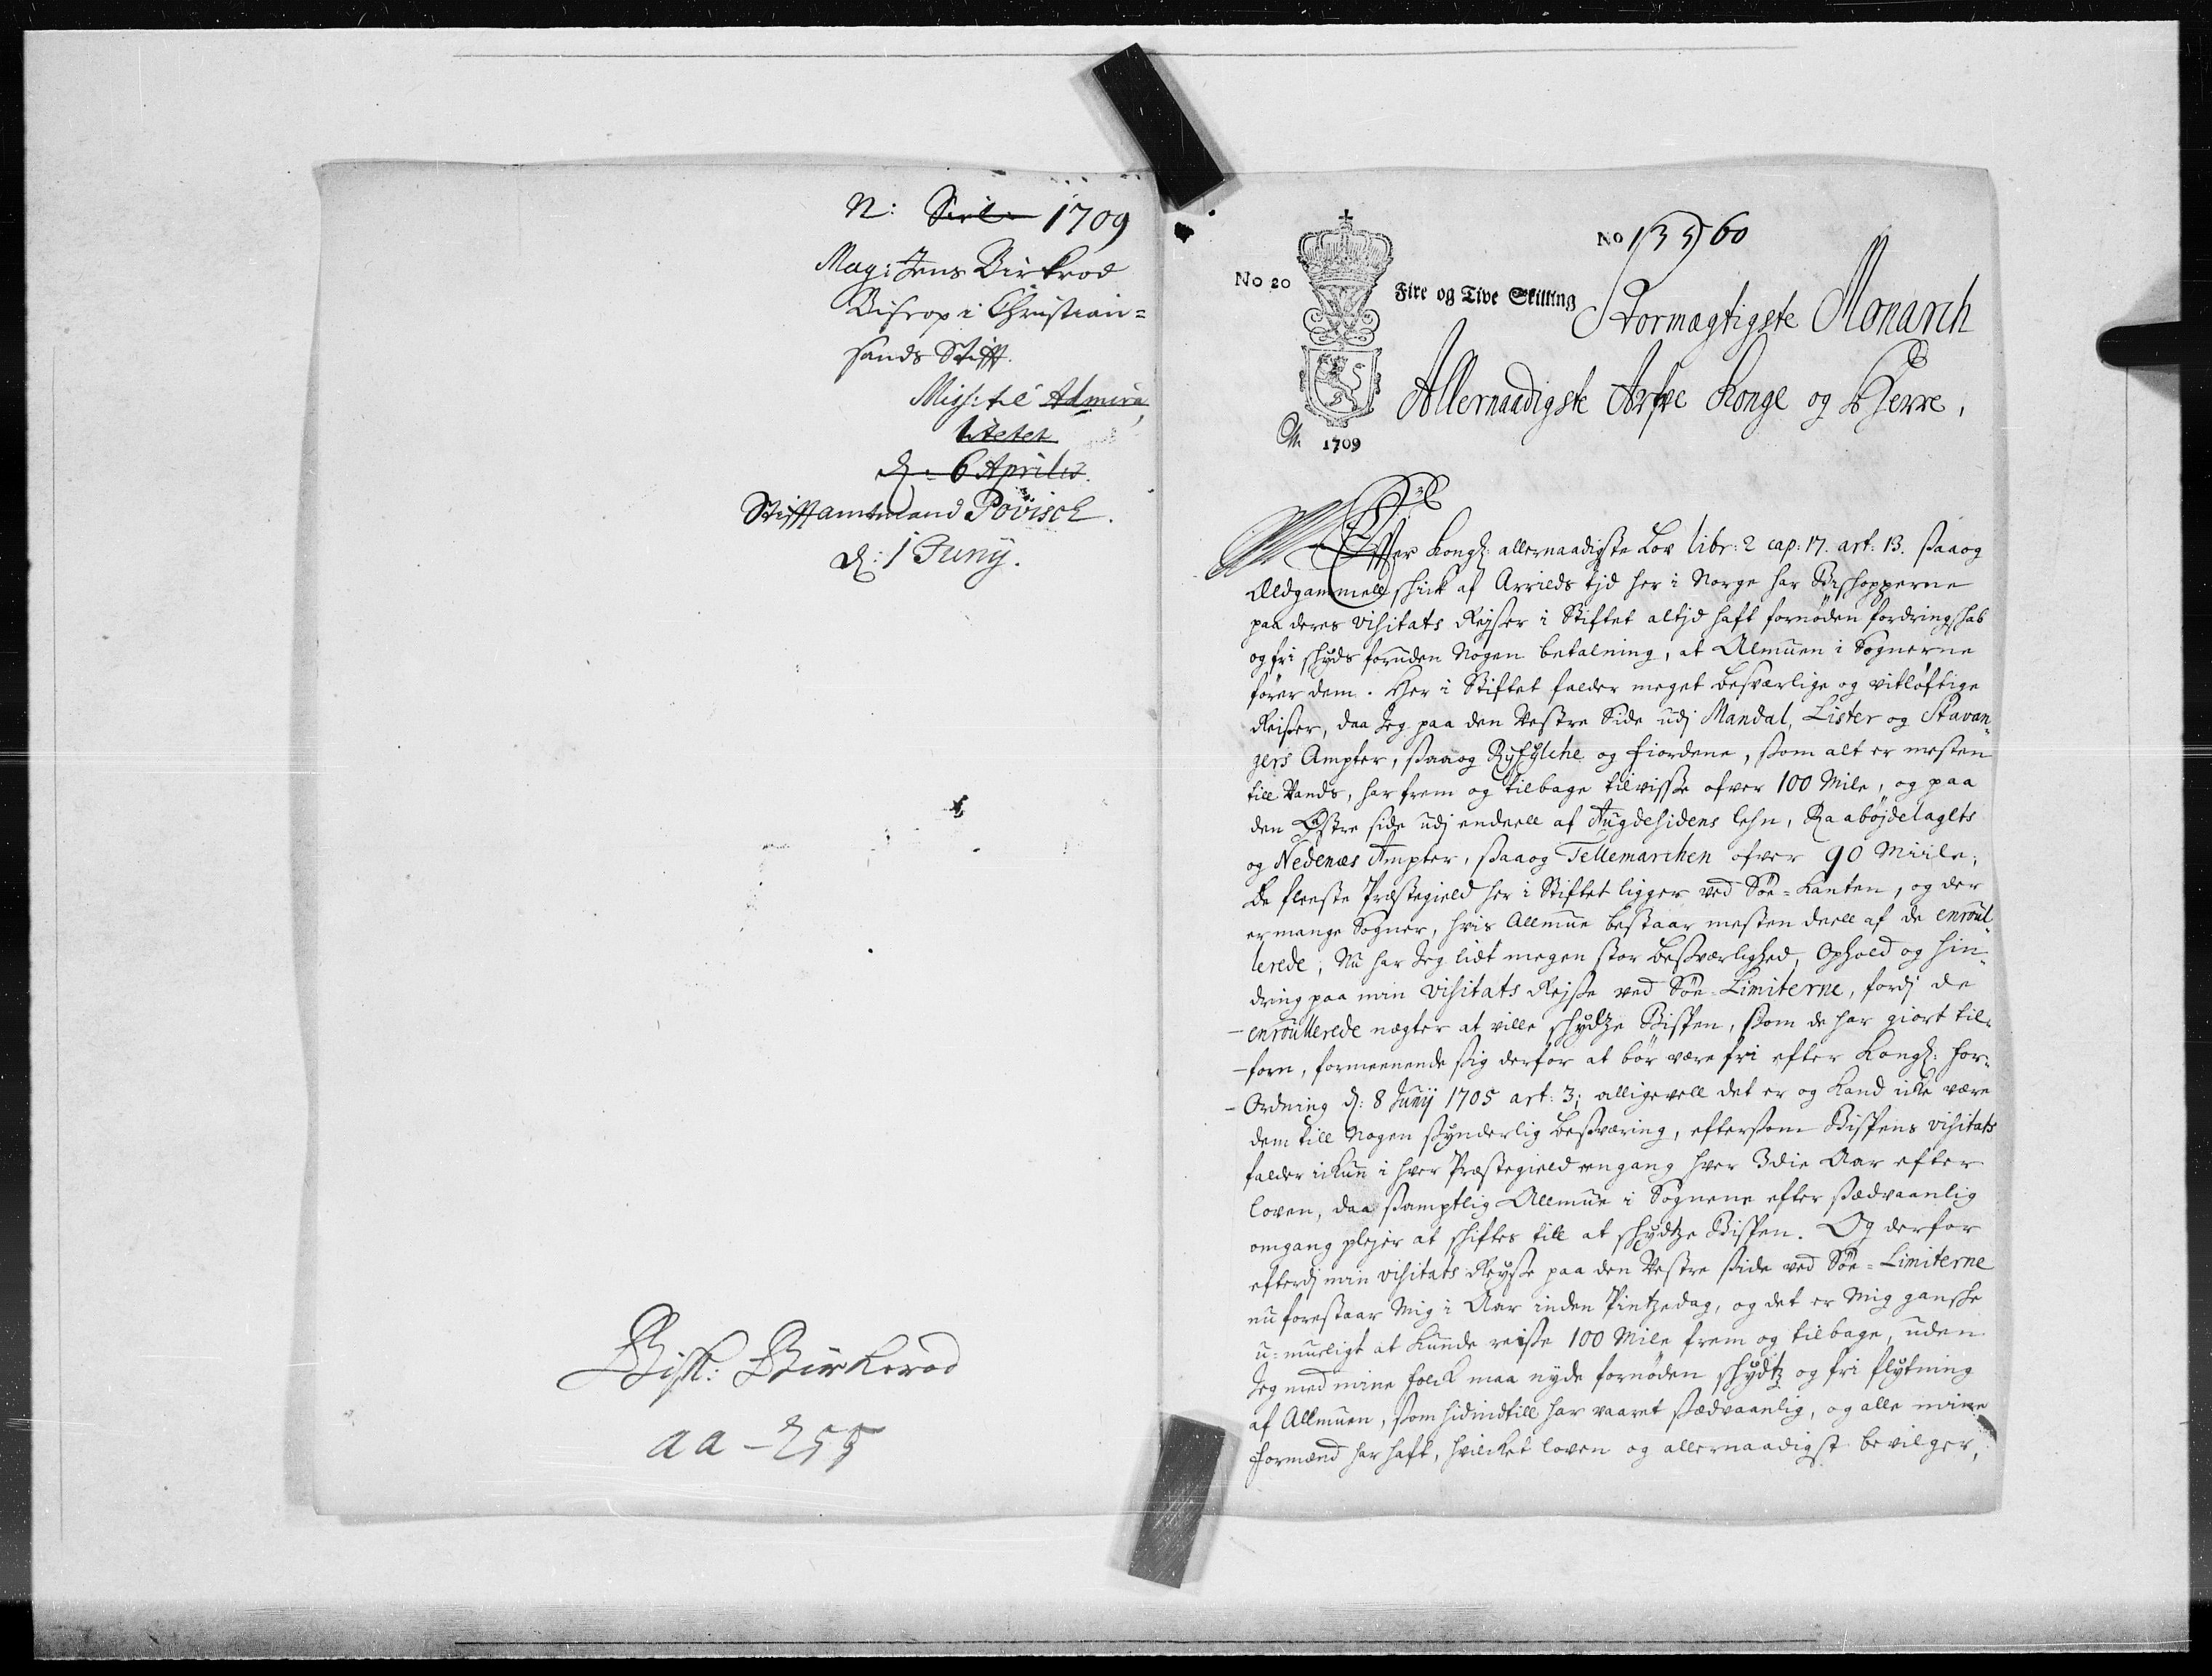 N: Siel: 1709
Mag: Jens Birkerod
Biscop i Christian=
sands Stifft.
Miss: til Admira
litetet
d: 6 Aprilis.
Stifftamtmand Povisch.
d: 1 Juny.
Bisk: Birkerod
aa - 255
No 20
No 135960
Fire og Tive Skilling
1709
Stormægtigste Monarch
Allernaadigste Arfve Konge og Herre,
Effter Kongl: allernaadigste Lov libr: 2 cap: 17. art: 13. saa og
Ældgammell skik af Arrilds tjd her i Norge har Biskopperne
paa deres visitats Rejser i Stiftet altjd haft fornøden fordringskab
og fri skyds foruden Nogen betalning, at Almuen i Sognerne
fører dem. Her i Stiftet falder meget besværlige og vitløftige
Reiser, daa Jeg paa den Vestre Side udj Mandal, Lister og Stavan=
gers Ampter, saa og Ryfylche og fiordene, som alt er mesten
till Vands, har frem og tilbage tilvisse ofver 100 Mile, og paa
den Østre side udj endeell af Augdesidens lehn, Raabøjdelagets
og Nedenæs Ampter, saa og Tellemarchen ofver 90 Miile;
De fleeste Præstegield her i Stiftet ligger ved Søe=Kanten, og der
er mange Sogner, hvis Allmue bestaar mesten deell af de enroul=
lerede; Nu har Jeg lidt megen stor besværlighed, Ophold og hin=
dring paa min visitats Rejse ved Søe=Limiterne, fordj de
enroullerede nægter at ville skydze Bispen, som de har giort til=
forn, formeenende sig derfor at bør være fri efter Kongl: for=
Ordning d: 8 Junij 1705 art: 3; alligevell det er og kand icke være
dem till Nogen synderlig besværing, eftersom Bispens visitats
falder ickun i hver Præstegield engang hver 3die Aar efter
loven, daa samptlig Allmue i Sognene efter sædvaanlig
omgang plejer at skiftes till at skydtze Bispen. Og derfor
efterdj min visitats Reyse paa den Vestre side ved Søe=Limiterne
nu forestaar Mig i Aar inden Pintzedag, og det er Mig ganske
u=mueligt at kunde reise 100 Mile frem og tilbage, uden
Jeg med mine folck maa nyde fornøden skydtz og fri flytning
af Allmuen, som hidindtill har vaaret sædvaanlig, og alle mine
formænd har haft, hvilcket loven og allernaadigst bevilger,